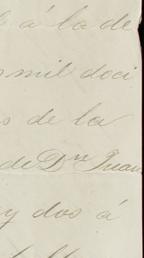 á la de
mil doci
s de la
de Dn Juan
y dos á